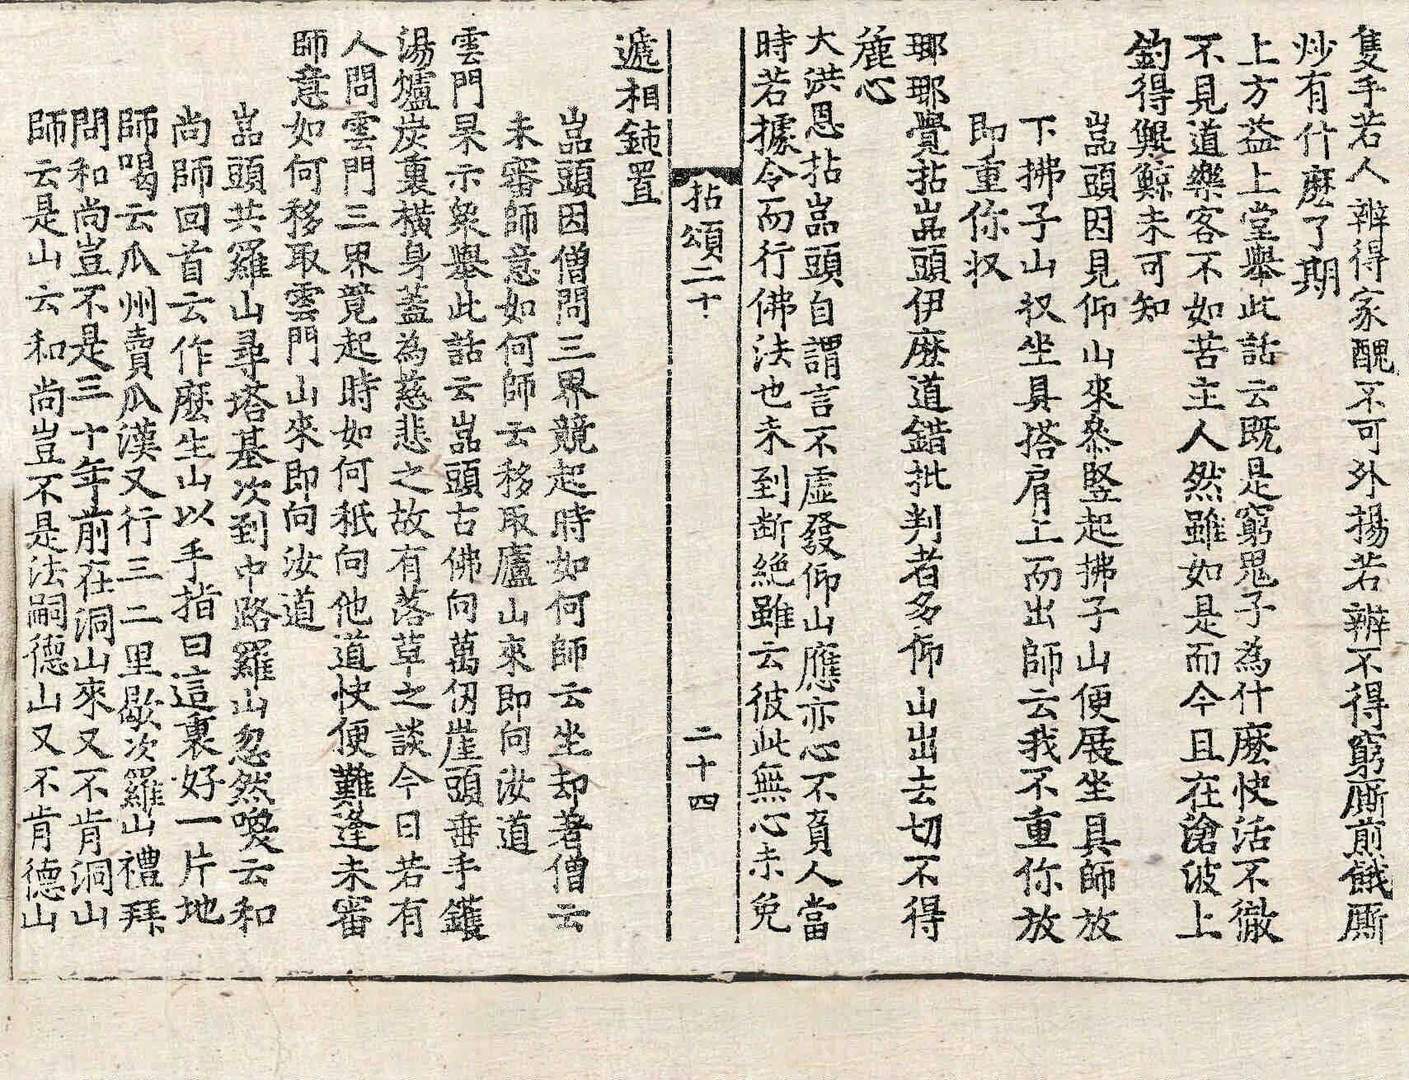 隻手若人辨得家醜不可外揚若辨不得窮廝煎餓廝
炒有什麽了期
上方益上堂舉此話云既是窮鬼子為什麽快活不徹
不見道樂客不如苦主人然雖如是而今且在滄波上
釣得鯤鯨未可知
嵓頭因見仰山來叅竪起拂子山便展坐具師放
下拂子山収坐具搭肩上而出師云我不重你放
即重你収
瑯琊覺拈嵓頭伊麽道錯批判者多仰山出去切不得
麄心
大洪恩拈嵓頭自謂言不虛發仰山應亦心不負人當
時若據令而行佛法也未到断絶雖云彼此無心未免
拈頌二十 二十四
遞相鈍置
嵓頭因僧問三界競起時如何師云坐却著僧云
未審師意如何師云移取廬山來即向汝道
雲門杲示衆舉此話云嵓頭古佛向萬仞崖頭垂手鑊
湯爐炭裏橫身蓋為慈悲之故有落草之談今日若有
人問雲門三界競起時如何秖向他道快便難逢未審
師意如何移取雲門山來即向汝道
嵓頭共羅山尋塔基次到中路羅山忽然喚云和
尚師回首云作麽生山以手指曰這裏好一片地
師喝云瓜州賣瓜漢又行三二里歇次羅山禮拜
問和尚豈不是三十年前在洞山來又不肯洞山
師云是山云和尚豈不是法嗣德山又不肯德山